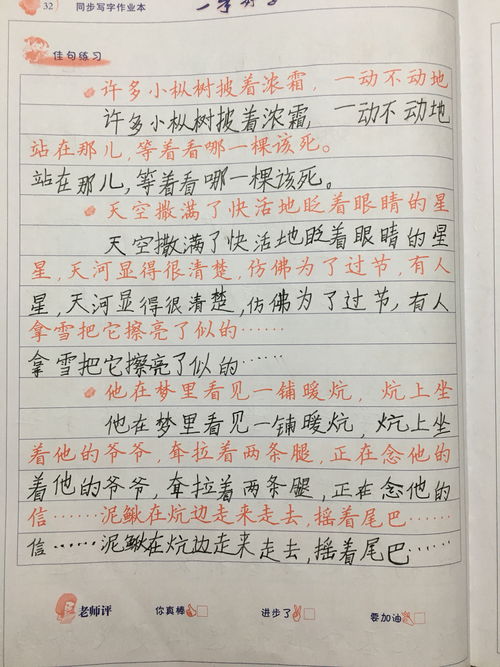 32 同步写字作业本
佳句练习
许多小枞树披着浓霜，一动不动地
许多小枞树披着浓霜，一动不动地
站在那儿，等着看哪一棵该死。
站在那儿，等着看哪一棵该死。
天空撒满了快活地眨着眼睛的星
天空撒满了快活地眨着眼睛的星
星，天河显得很清楚，仿佛为了过节，有人
星，天河显得很清楚，仿佛为了过节，有人
拿雪把它擦亮了似的……
拿雪把它擦亮了似的……
他在梦里看见一铺暖炕，炕上坐
他在梦里看见一铺暖炕，炕上坐
着他的爷爷，耷拉着两条腿，正在念他的
着他的爷爷，耷拉着两条腿，正在念他的
信……泥鳅在炕边走来走去，摇着尾巴……
信……泥鳅在炕边走来走去，摇着尾巴……
老师评 你真棒 进步了 要加油